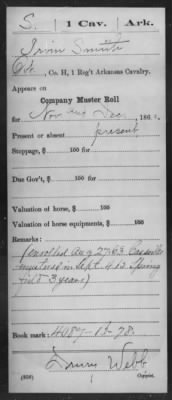 S. 1 Cav. Ark.
Irvin Smith
Co. H, 1 Reg't Arkansas Cavalry.
Appears on
Company Muster Roll
for Nov and Dec, 186
Present or absent present
Stoppage, $ 100 for
Due Gov't, $ 100 for
Valuation of horse, $ 100
Valuation of horse equipments, $ 100
Remarks:
Enrolled Aug 27 63 Cassville
mustered in Sept. 4 63 Spring
field 3 years
Book mark: 4087-B-78
Webb
(858) Copyist.